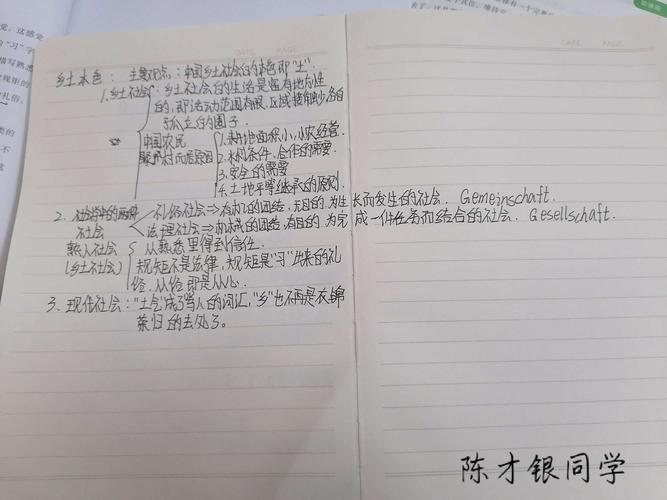 DATE PAGE
DATE PAGE
乡土本色：主要观点：中国乡土社会的本色即"土".
1.乡土社会：乡土社会的生活是富有地方性
的,即活动范围有限,区域接触少,各自
孤立的圈子.
中国农民
聚村而居原因
1.耕地面积小,小农经营.
2.水利条件,合作的需要
3.安全的需要
4.土地平等继承的原则
2.社会学中的两种
社会
礼俗社会⇒有机的团结,无目的,为生长而发生的社会. Gemeinschaft.
法理社会⇒机械的团结,有目的 为完成一件任务而结合的社会. Gesellschaft.
熟人社会
(乡土社会)
从熟悉里得到信任.
规矩不是法律,规矩是"习"出来的礼
俗.从俗即是从心.
3.现代社会："土气"成了骂人的词汇,"乡"也不再是衣锦
荣归的去处了。
陈才银同学